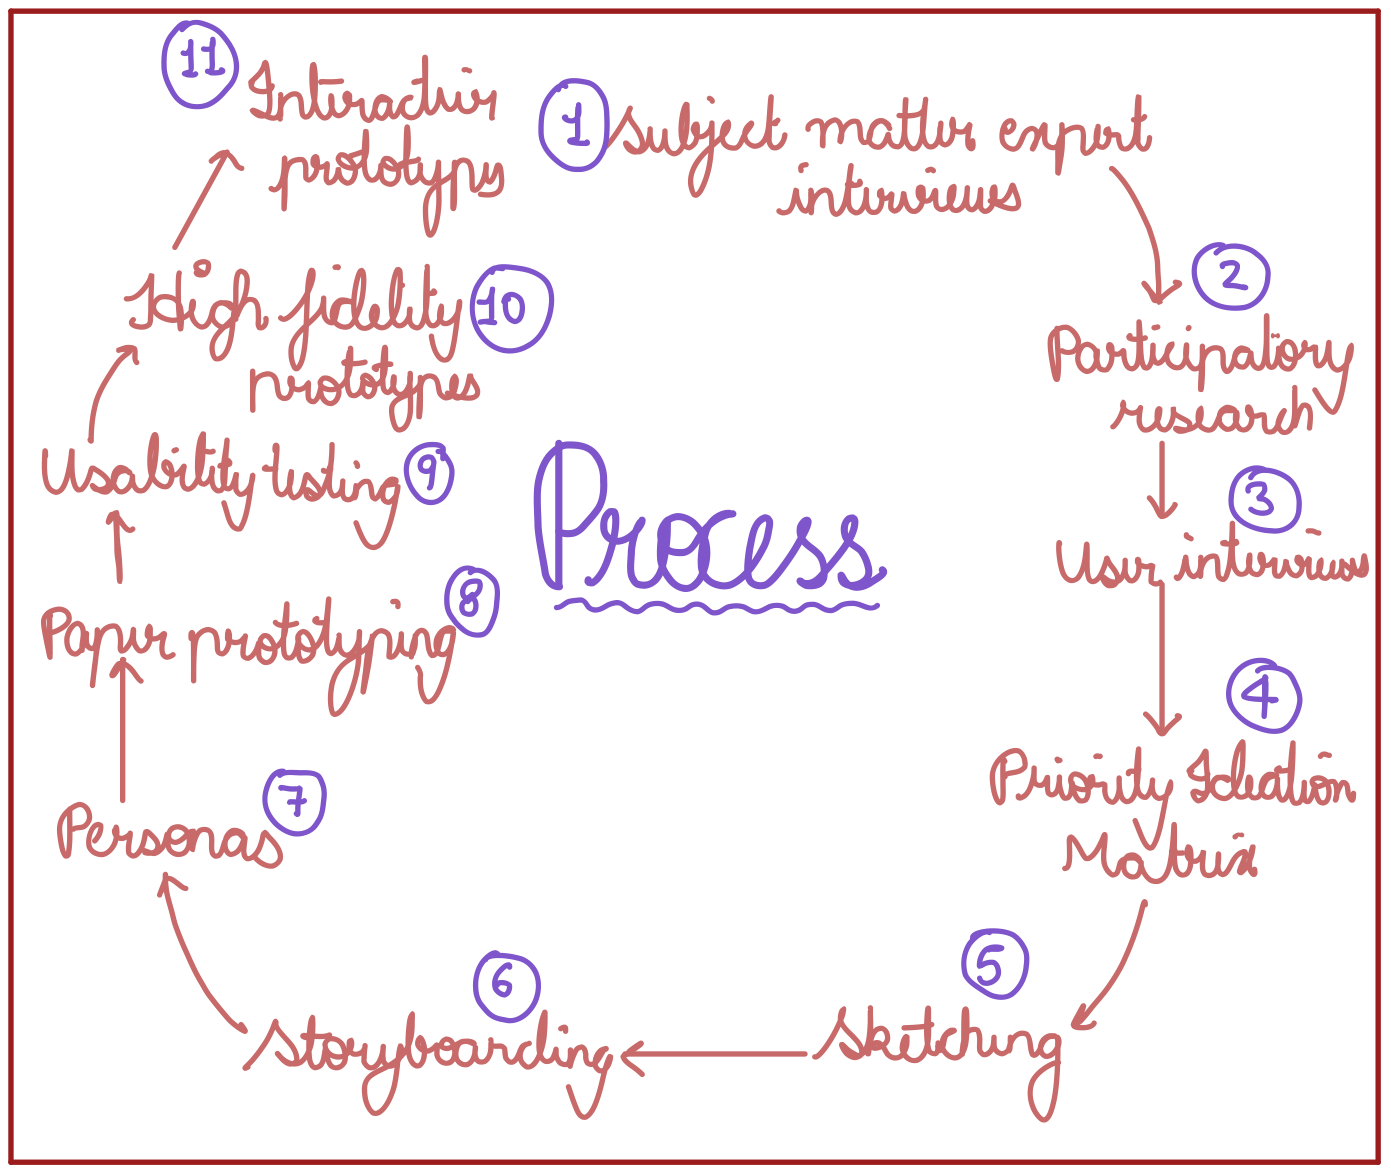 Process
1
Subject matter expert
interviews
2
Participatory
research
3
User interviews
4
Priority Ideation
Matrix
5
Sketching
6
Storyboarding
7
Personas
8
Paper prototyping
9
Usability testing
10
High fidelity
prototypes
11
Interactive
prototypes